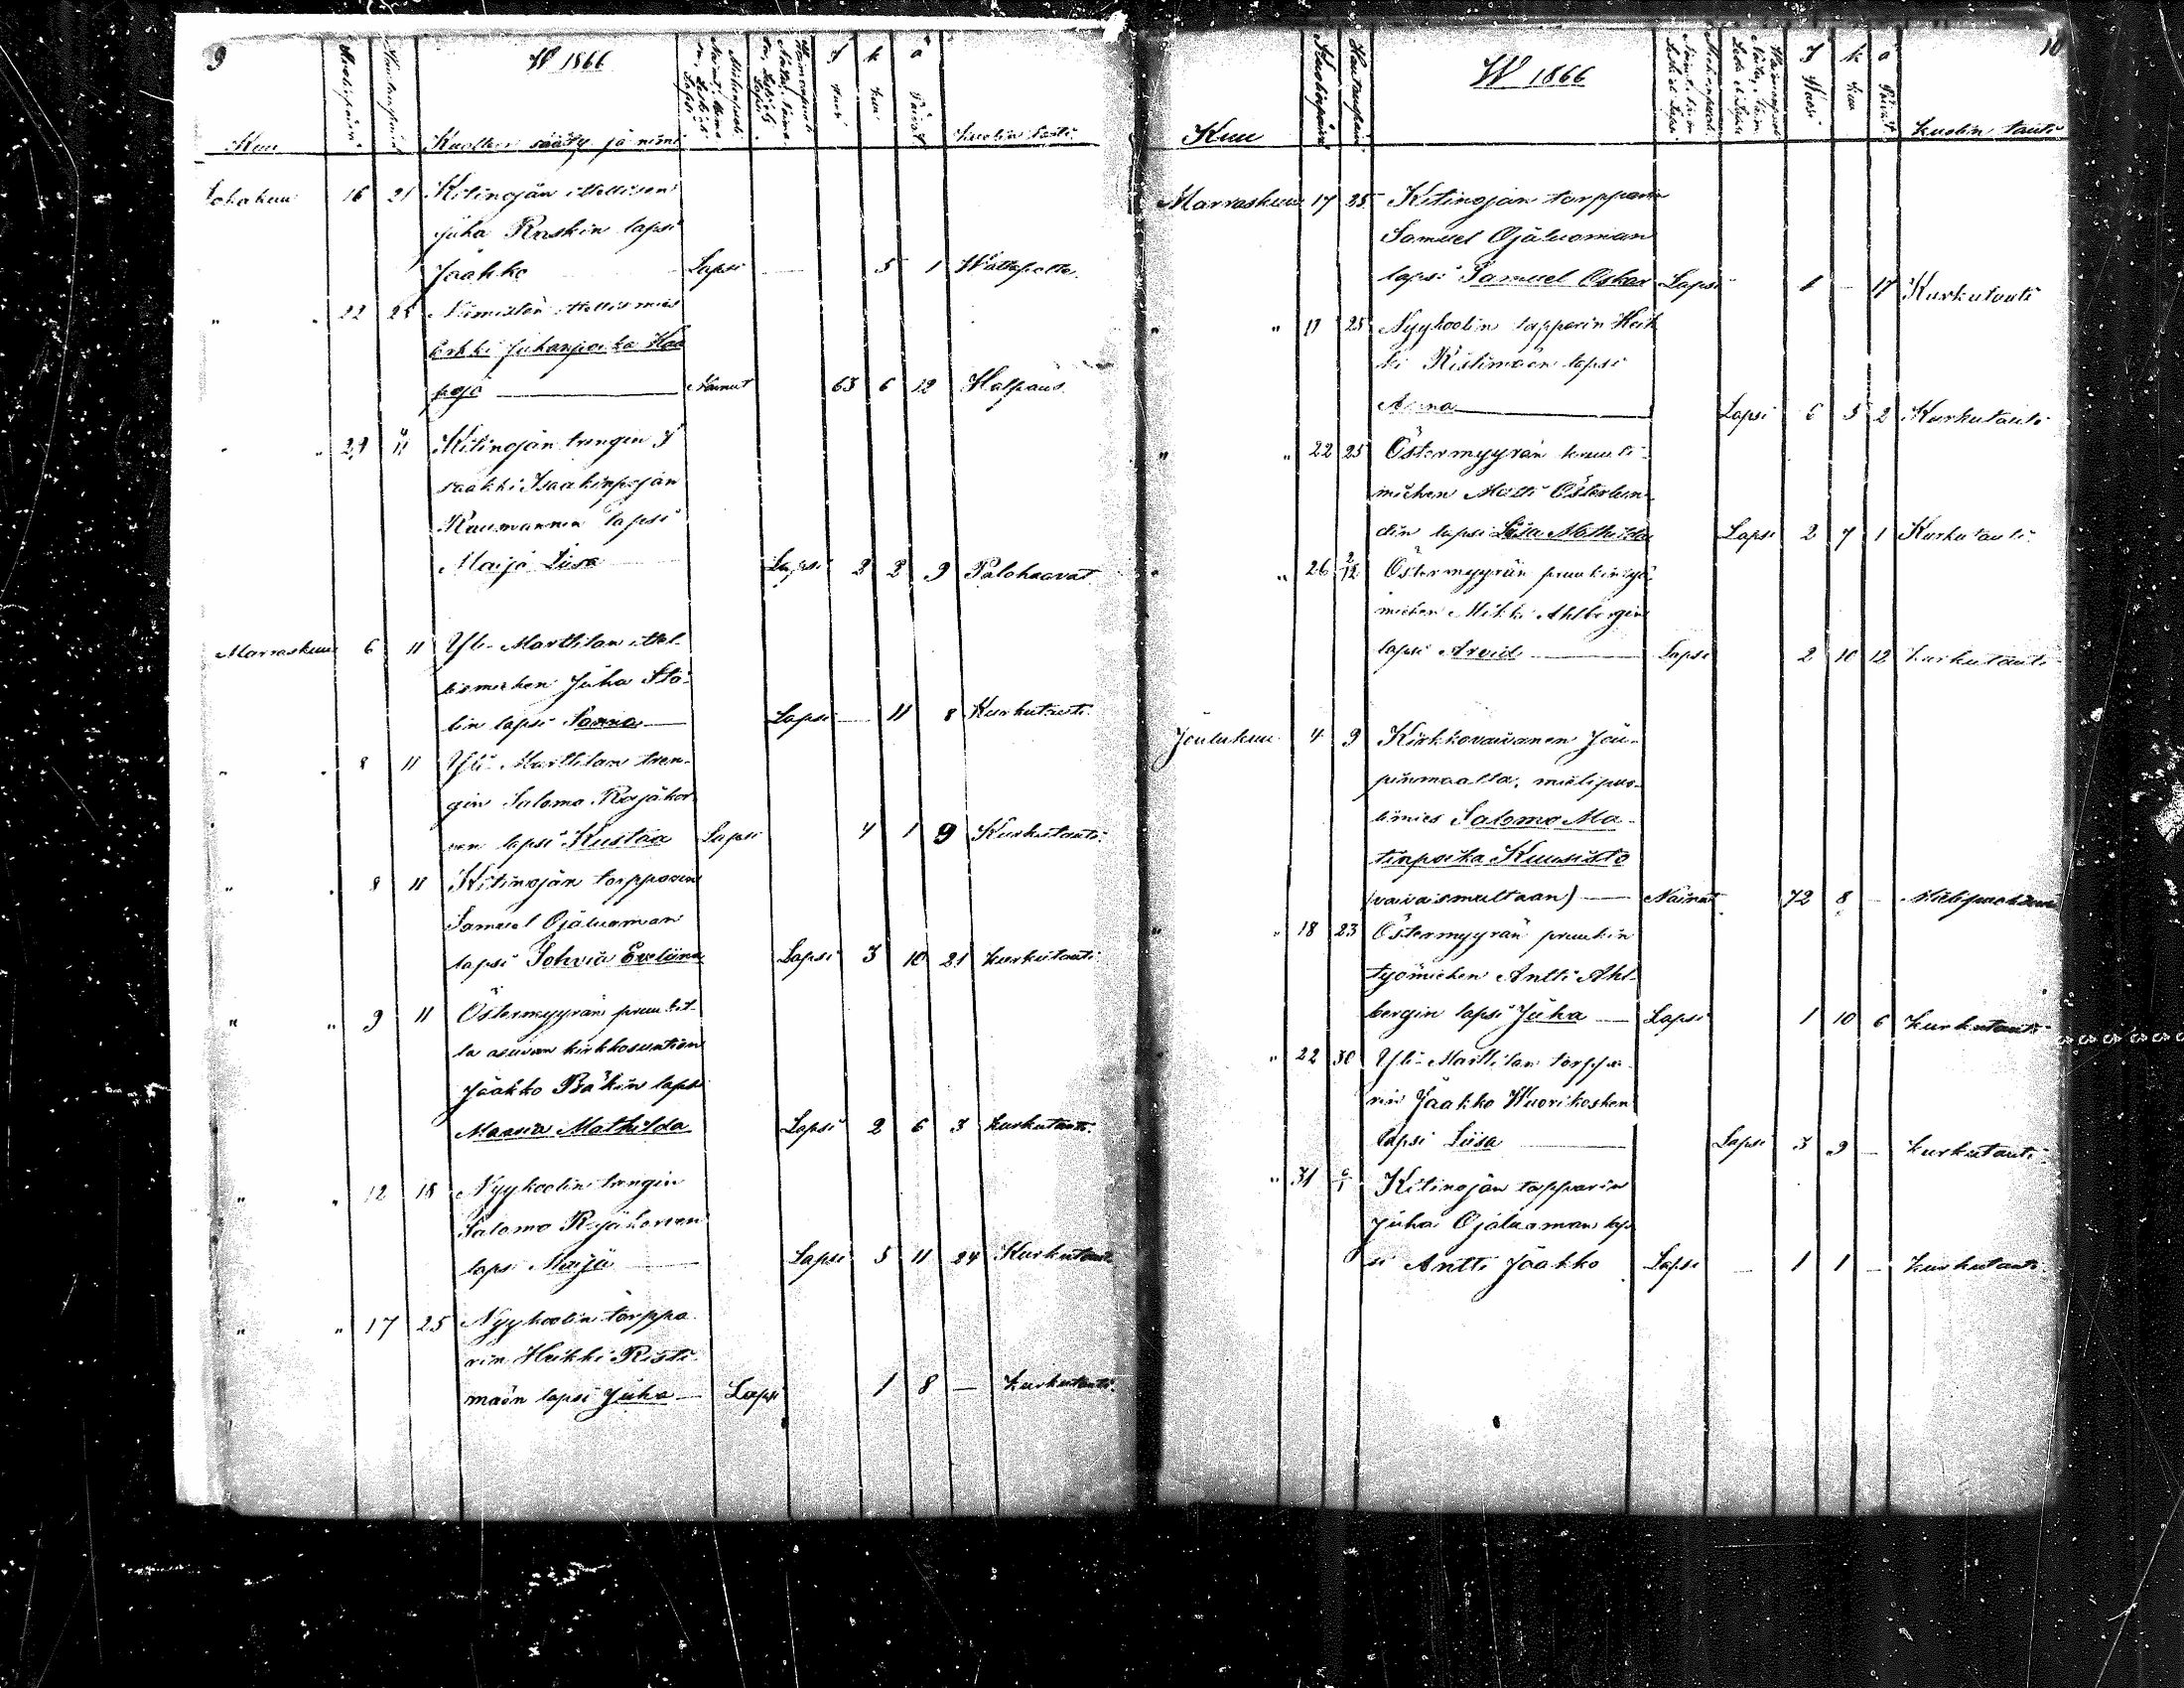 9
W 1866
Kuu
Kuolinpäivä
Hautauspäivä
Kuollen sääty ja nimi
Kuu
Päivät
Kuolin tauti
Lokakuu 16 21 Kitinojan ittellisen
Juha Raskin lapsi
Jaakko Lapsi — 5 1
" 22 28 ittellismies
Erkki Juhanpoika Haa
poja — Nainut 63 6 12 Halpaus
" 29 4/11 Kitinojan trengin I
saakki Isaakinpojan
Raumannin lapsi
Maija Liisa Lapsi 2 2 9 Palohaavat
Marraskuu 6 11 Yli-Marttilan ittel-
lismiehen Juha Stå-
lin lapsi Sanna — Lapsi — 11 8 Kurkutauti
" 8 11 Yli-Marttilan tren-
gin Salomo Rajakor
ven lapsi Kustaa Lapsi 4 1 9 Kurkutauti
" 8 11 Kitinojan torpparin
Samuel Ojaluoman
lapsi Sohvia Eveliina Lapsi 3 10 21 Kurkutauti
" 9 11 Östermyyrän pruukil-
la asuvan kirkkosuntion
Jaakko Bäkin lapsi
Maaria Mathilda Lapsi 2 6 3 Kurkutauti
" 12 18 Nyykoolin trengin
Salomo Rajakorven
lapsi Maija Lapsi 5 11 24 Kurkutauti
" 17 25 Nyykoolin torppa
rin Heikki Risti
mäen lapsi Juha — Lapsi 1 8 — Kurkutauti
10
W 1866
Kuu
Kuolinpäivä
Hautauspäivä
Wuosi
Kuu
Päivät
Kuolin tauti
Marraskuu 17 25 Kitinojan torpparin
Samuel Ojaluoman
lapsi Samuel Oskar Lapsi 1 — 17 Kurkutauti
" 17 25 Nyykoolin torpparin Heik
ki Ristimäen lapsi
Anna — Lapsi 6 5 2 Kurkutauti
" 22 25 Östermyyrän
miehen Matti Österlun-
din lapsi Liisa Mathilda Lapsi 2 7 1 Kurkutauti
" 26 2/12 Östermyyrän pruukintyö
miehen Mikki Ahlbergin
lapsi Arvid — Lapsi 2 10 12 Kurkutauti
Joulukuu 4 9 Kirkkovaivanen Jou-
pinmaalta, mielipuo-
limies Salomo Ma-
tinpoika Kuusisto
(vaivaismultaan) — Nainut 72 8 — Mielipuolisuus
" 18 23 Östermyyrän pruukin
työmiehen Antti Ahl-
bergin lapsi Juha — Lapsi 1 10 6 Kurkutauti
" 22 30 Yli-Marttilan torppa-
rin Jaakko Wuorikosken
lapsi Liisa — Lapsi 3 9 — Kurkutauti
" 31 6/1 Kitinojan torpparin
Juha Ojaluoman lap
si Antti Jaakko Lapsi — 1 1 — Kurkutauti